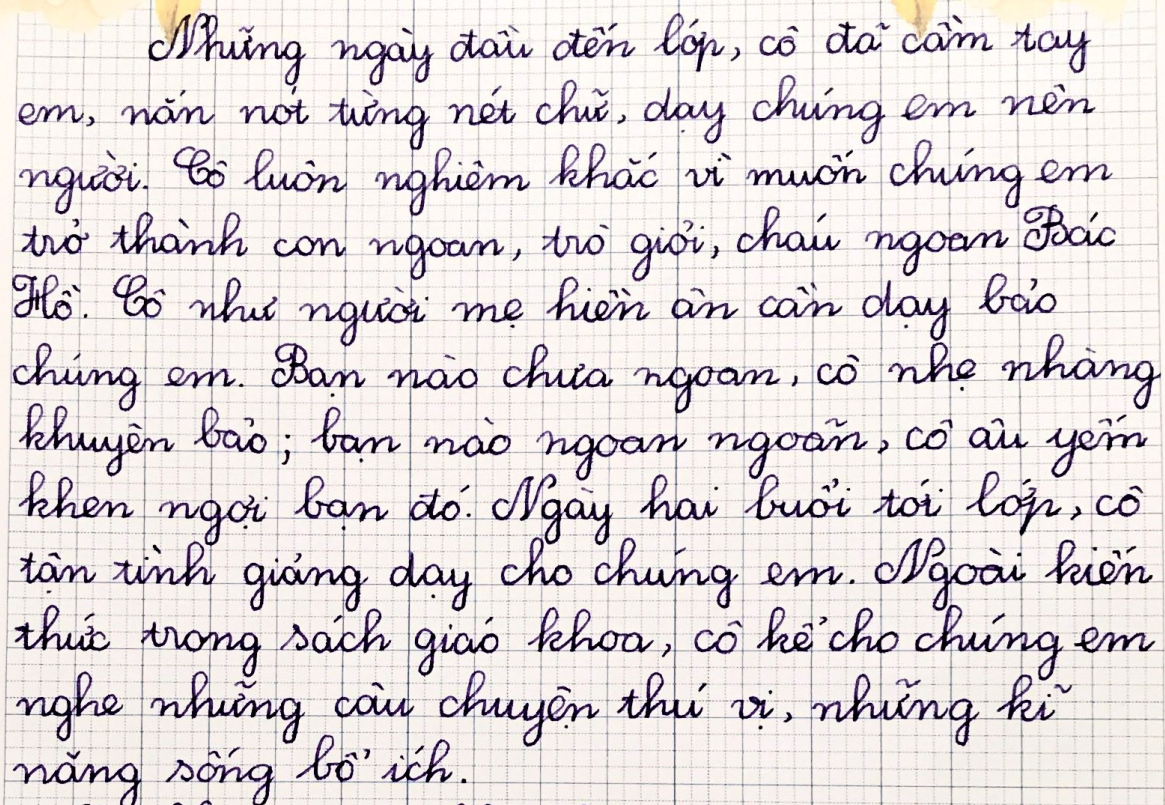 Những ngày đầu đến lớp, cô đã cầm tay
em, nắn nót từng nét chữ, dạy chúng em nên
người. Cô luôn nghiêm khắc vì muốn chúng em
trở thành con ngoan, trò giỏi, cháu ngoan Bác
Hồ. Cô như người mẹ hiền ân cần dạy bảo
chúng em. Bạn nào chưa ngoan, cô nhẹ nhàng
khuyên bảo; bạn nào ngoan ngoãn, cô âu yếm
khen ngợi bạn đó. Ngày hai buổi tới lớp, cô
tận tình giảng dạy cho chúng em. Ngoài kiến
thức trong sách giáo khoa, cô kể cho chúng em
nghe những câu chuyện thú vị, những kĩ
năng sống bổ ích.